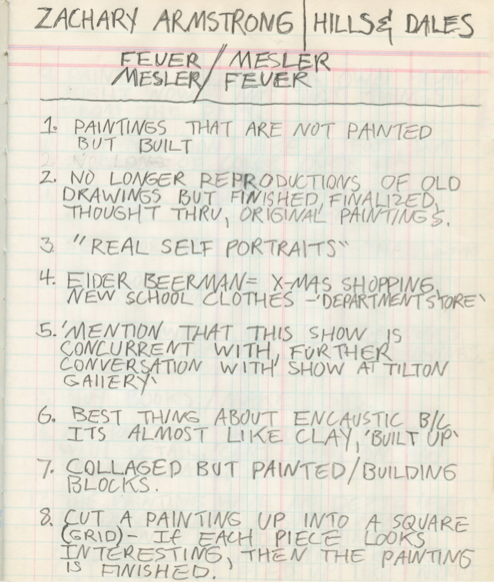 ZACHARY ARMSTRONG | HILLS & DALES
FEUER / MESLER
MESLER / FEUER
1. PAINTINGS THAT ARE NOT PAINTED
BUT BUILT
2. NO LONGER REPRODUCTIONS OF OLD
DRAWINGS BUT FINISHED, FINALIZED,
THOUGHT THRU, ORIGINAL PAINTINGS.
3. "REAL SELF PORTRAITS"
4. EIDER BEERMAN= X-MAS SHOPPING,
NEW SCHOOL CLOTHES - 'DEPARTMENT STORE'
5. 'MENTION THAT THIS SHOW IS
CONCURRENT WITH, FURTHER
CONVERSATION WITH SHOW AT TILTON
GALLERY'
6. BEST THING ABOUT ENCAUSTIC B/C
ITS ALMOST LIKE CLAY, 'BUILT UP'
7. COLLAGED BUT PAINTED/BUILDING
BLOCKS.
8. CUT A PAINTING UP INTO A SQUARE
(GRID) - IF EACH PIECE LOOKS
INTERESTING, THEN THE PAINTING
IS FINISHED.